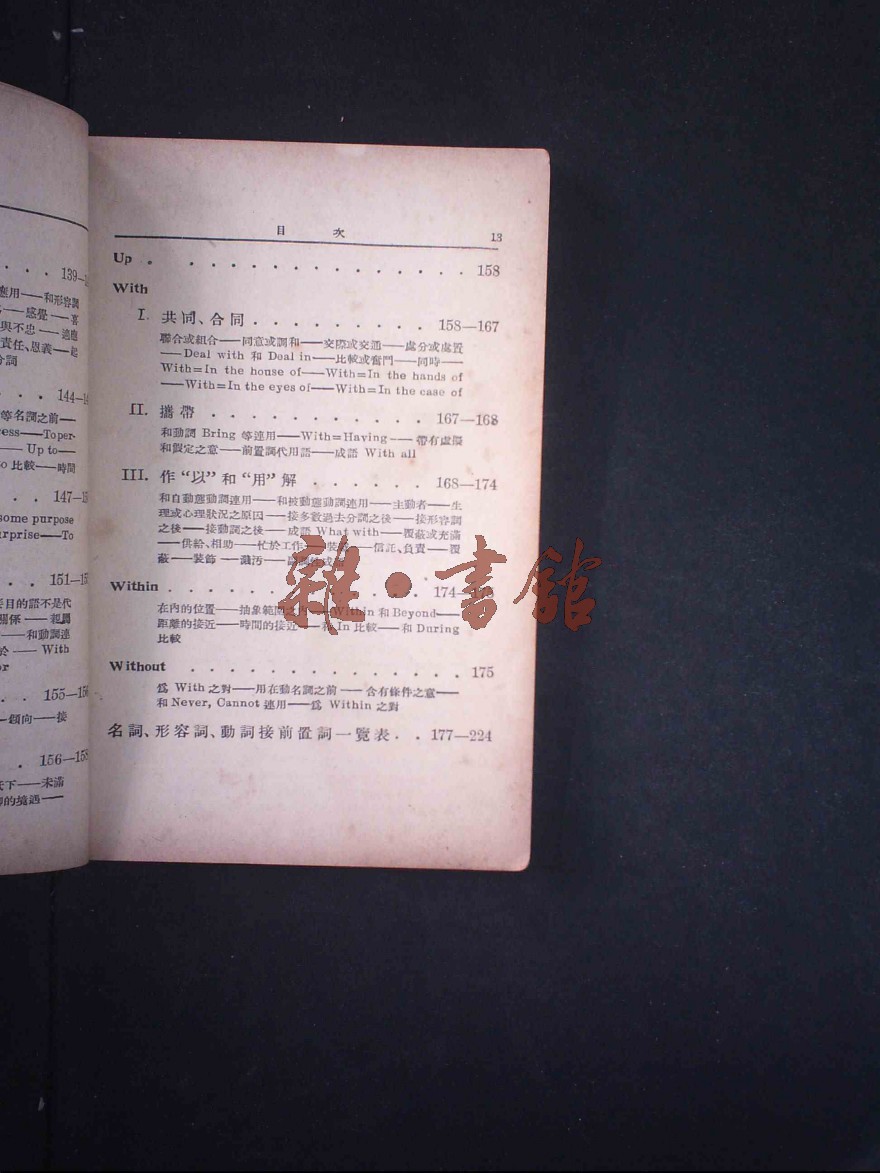 139—
應用——和形容詞
——感覺——喜
與不忠——適應
責任、恩義——起
分詞
144—1
等名詞之前—
ess——To per-
—— Up to—
o 比較——時間
147—15
some purpose
rprise——To
151—15
目的語不是代
關係——親屬
——和動詞連
於—— With
or
155—156
傾向——接
156—158
天下——未滿
的境遇——
目 次 13
Up . . . . . . . . . . . . . 158
With
I. 共同、合同 . . . . . . . . . 158—167
聯合或組合——同意或調和——交際或交通——處分或處置
——Deal with 和 Deal in——比較或奮鬥——同時——
With=In the house of——With=In the hands of
——With=In the eyes of——With=In the case of
II. 攜帶 . . . . . . . . . . . 167—168
和動詞 Bring 等連用——With=Having——帶有虛擬
和假定之意——前置詞代用語——成語 With all
III. 作“以”和“用”解 . . . . . . 168—174
和自動態動詞連用——和被動態動詞連用——主動者——生
理或心理狀況之原因——接多數過去分詞之後——接形容詞
之後——接動詞之後——成語 What with——覆蔽或充滿
——供給、相助——忙於工作——裝——信託、負責——覆
蔽——裝飾——濺污——
Within . . . . . . . . . . . 174—175
在內的位置——抽象範圍之內——Within 和 Beyond——
距離的接近——時間的接近——和 In 比較——和 During
比較
Without . . . . . . . . . . . . 175
爲 With 之對——用在動名詞之前——含有條件之意——
和 Never, Cannot 連用——爲 Within 之對
名詞、形容詞、動詞接前置詞一覽表 . . 177—224
雜·書館